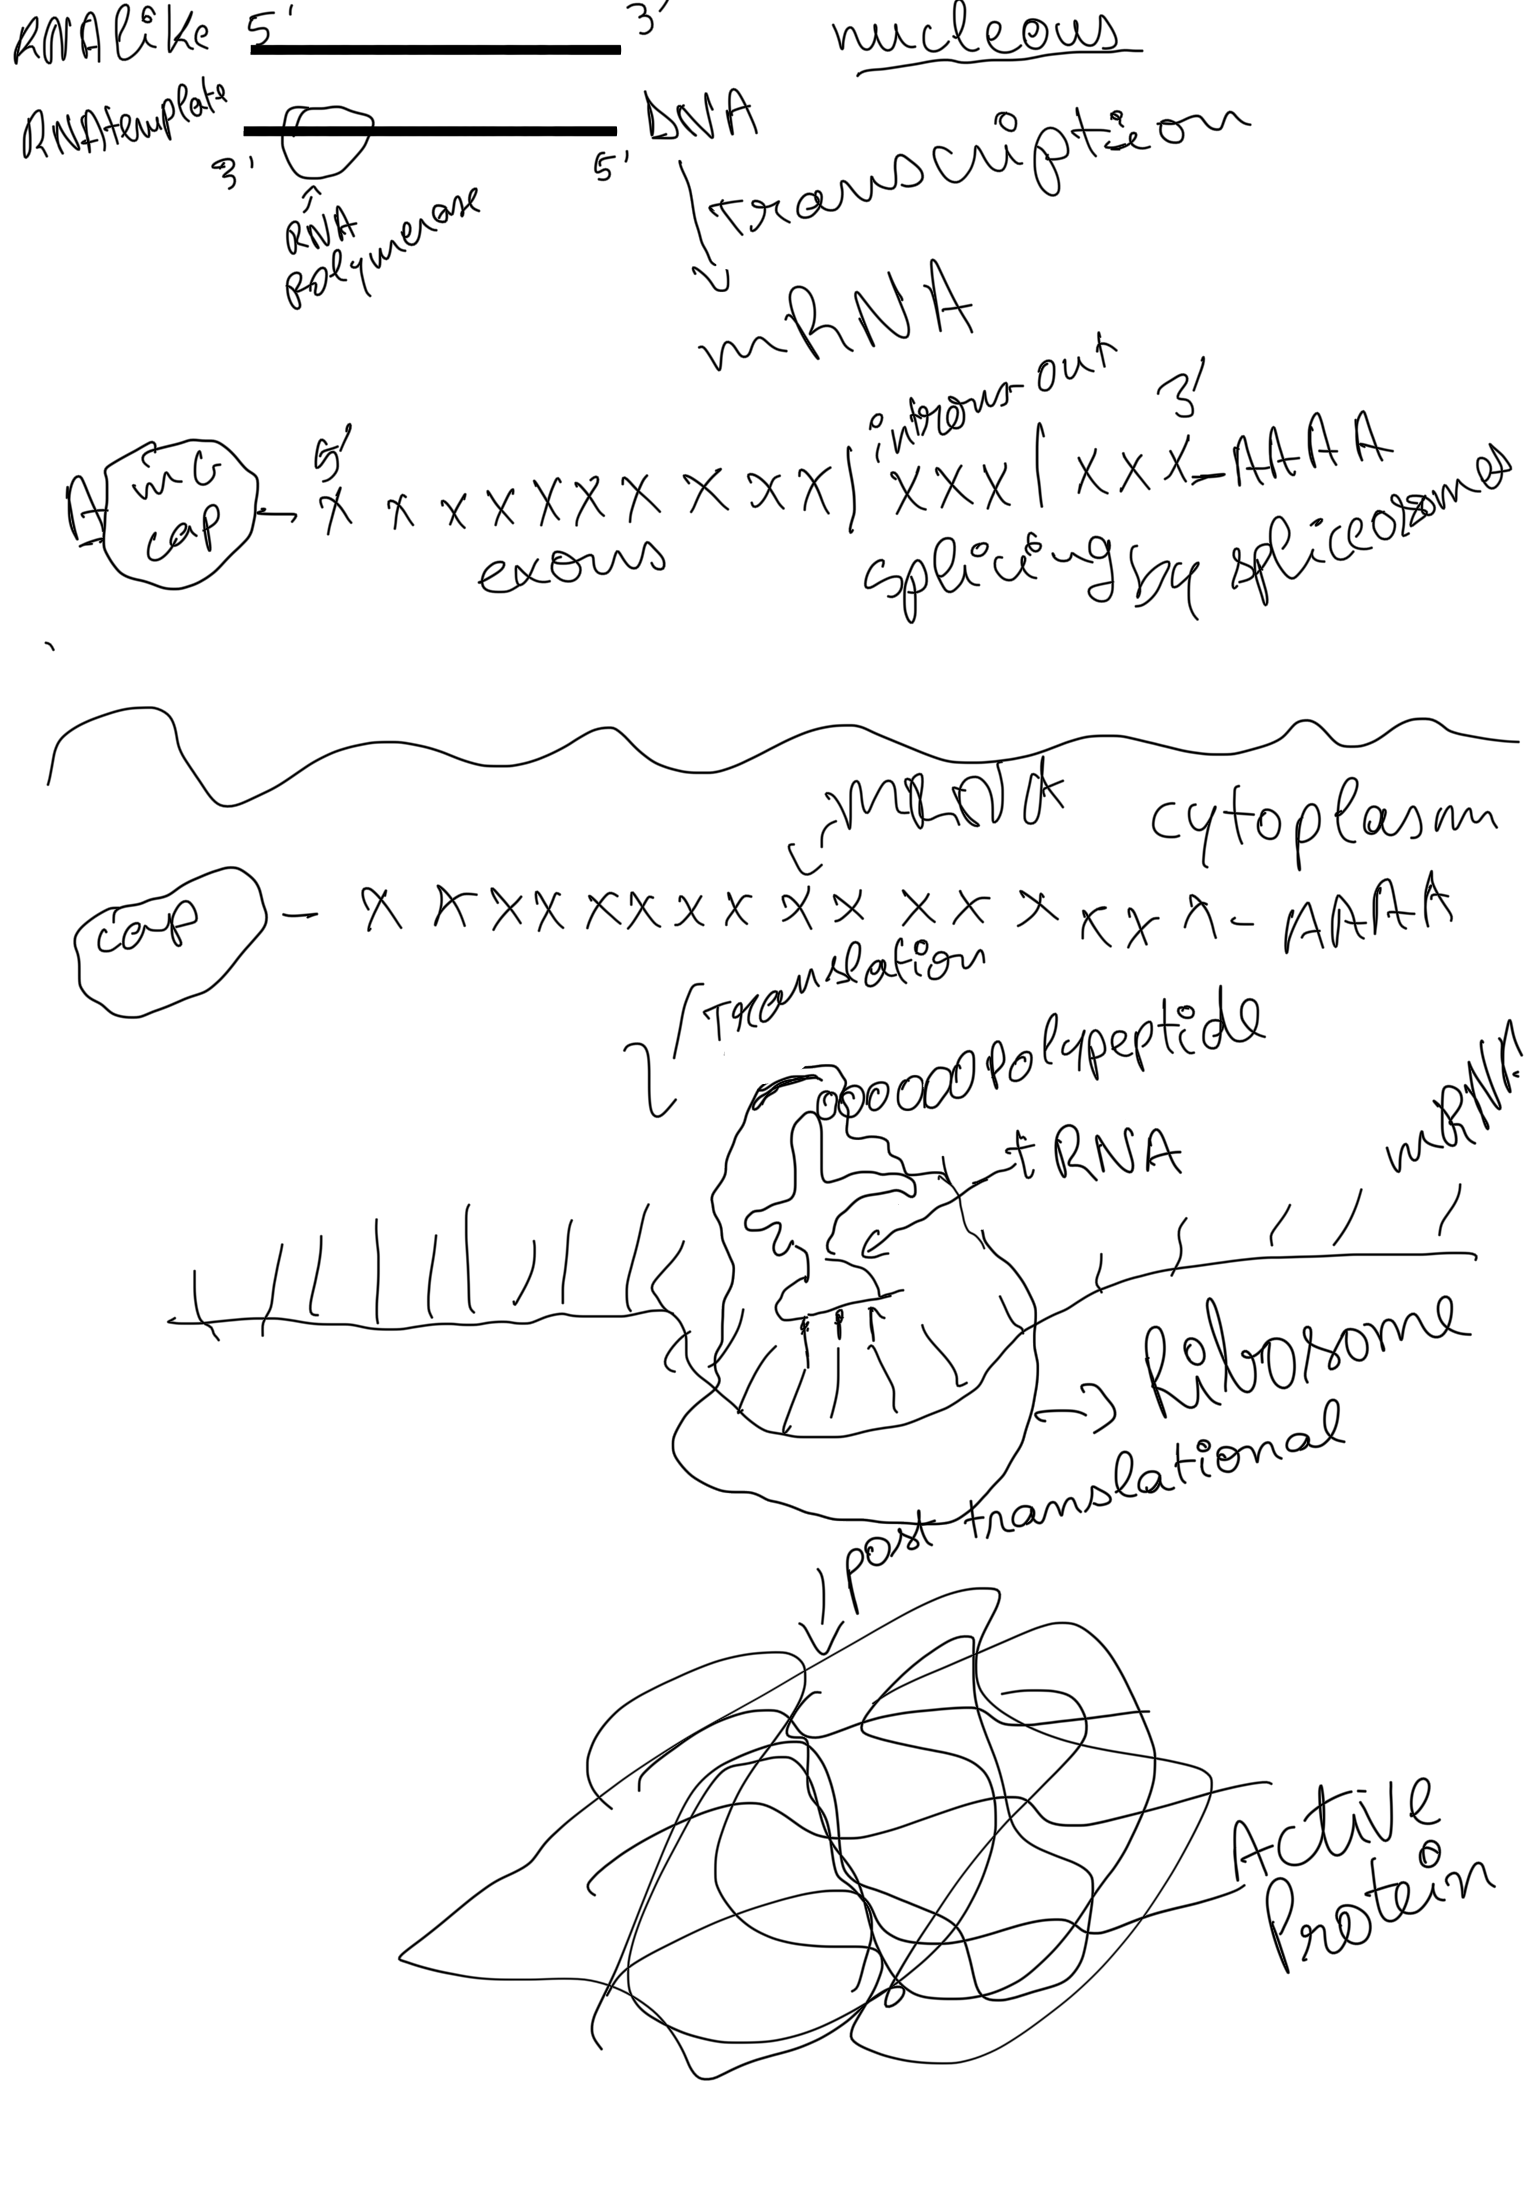 RNAlike 5' 3' nucleous
RNAtemplate DNA
3' 5'
transcription
RNA
polymerase
mRNA
introns-out
5' 3'
mG
cap - x x x x x x x x x x | x x x | x x x - AAAA
exons splicing by spliceosomes
mRNA cytoplasm
cap - x x x x x x x x x x x x x x x x - AAAA
Translation
polypeptide
tRNA mRNA
Ribosome
post translational
Active
Protein